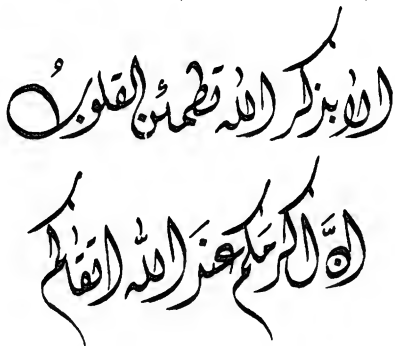 الا بذكر الله تطمئن القلوبُ
انَّ اكرمَكم عندَ الله اتقاكم